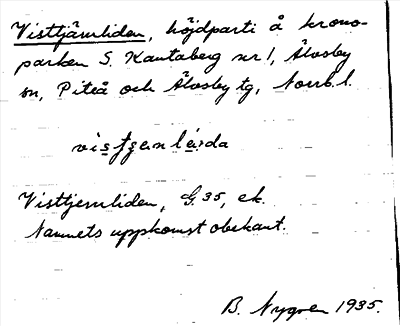 Visttjärnliden, höjdparti å krono-
parken S. Kantaberg nr 1, Älvsby
sn, Piteå och Älvsby tg, Norrb. l.
Visttjernliden, G. 35, ek.
Namnets uppkomst obekant.
B. Nygren 1935.